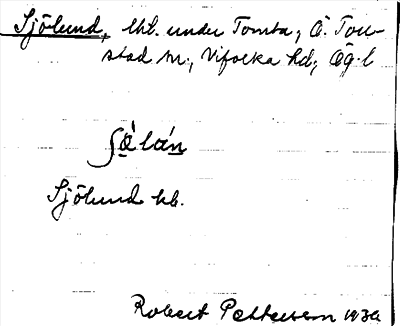 Sjölund, lht. under Tomta, Ö. Tol-
stad sn., Vifolka hd, Ög. l
ʃö̀lán
Sjölund kb.
Robert Pettersson 1932